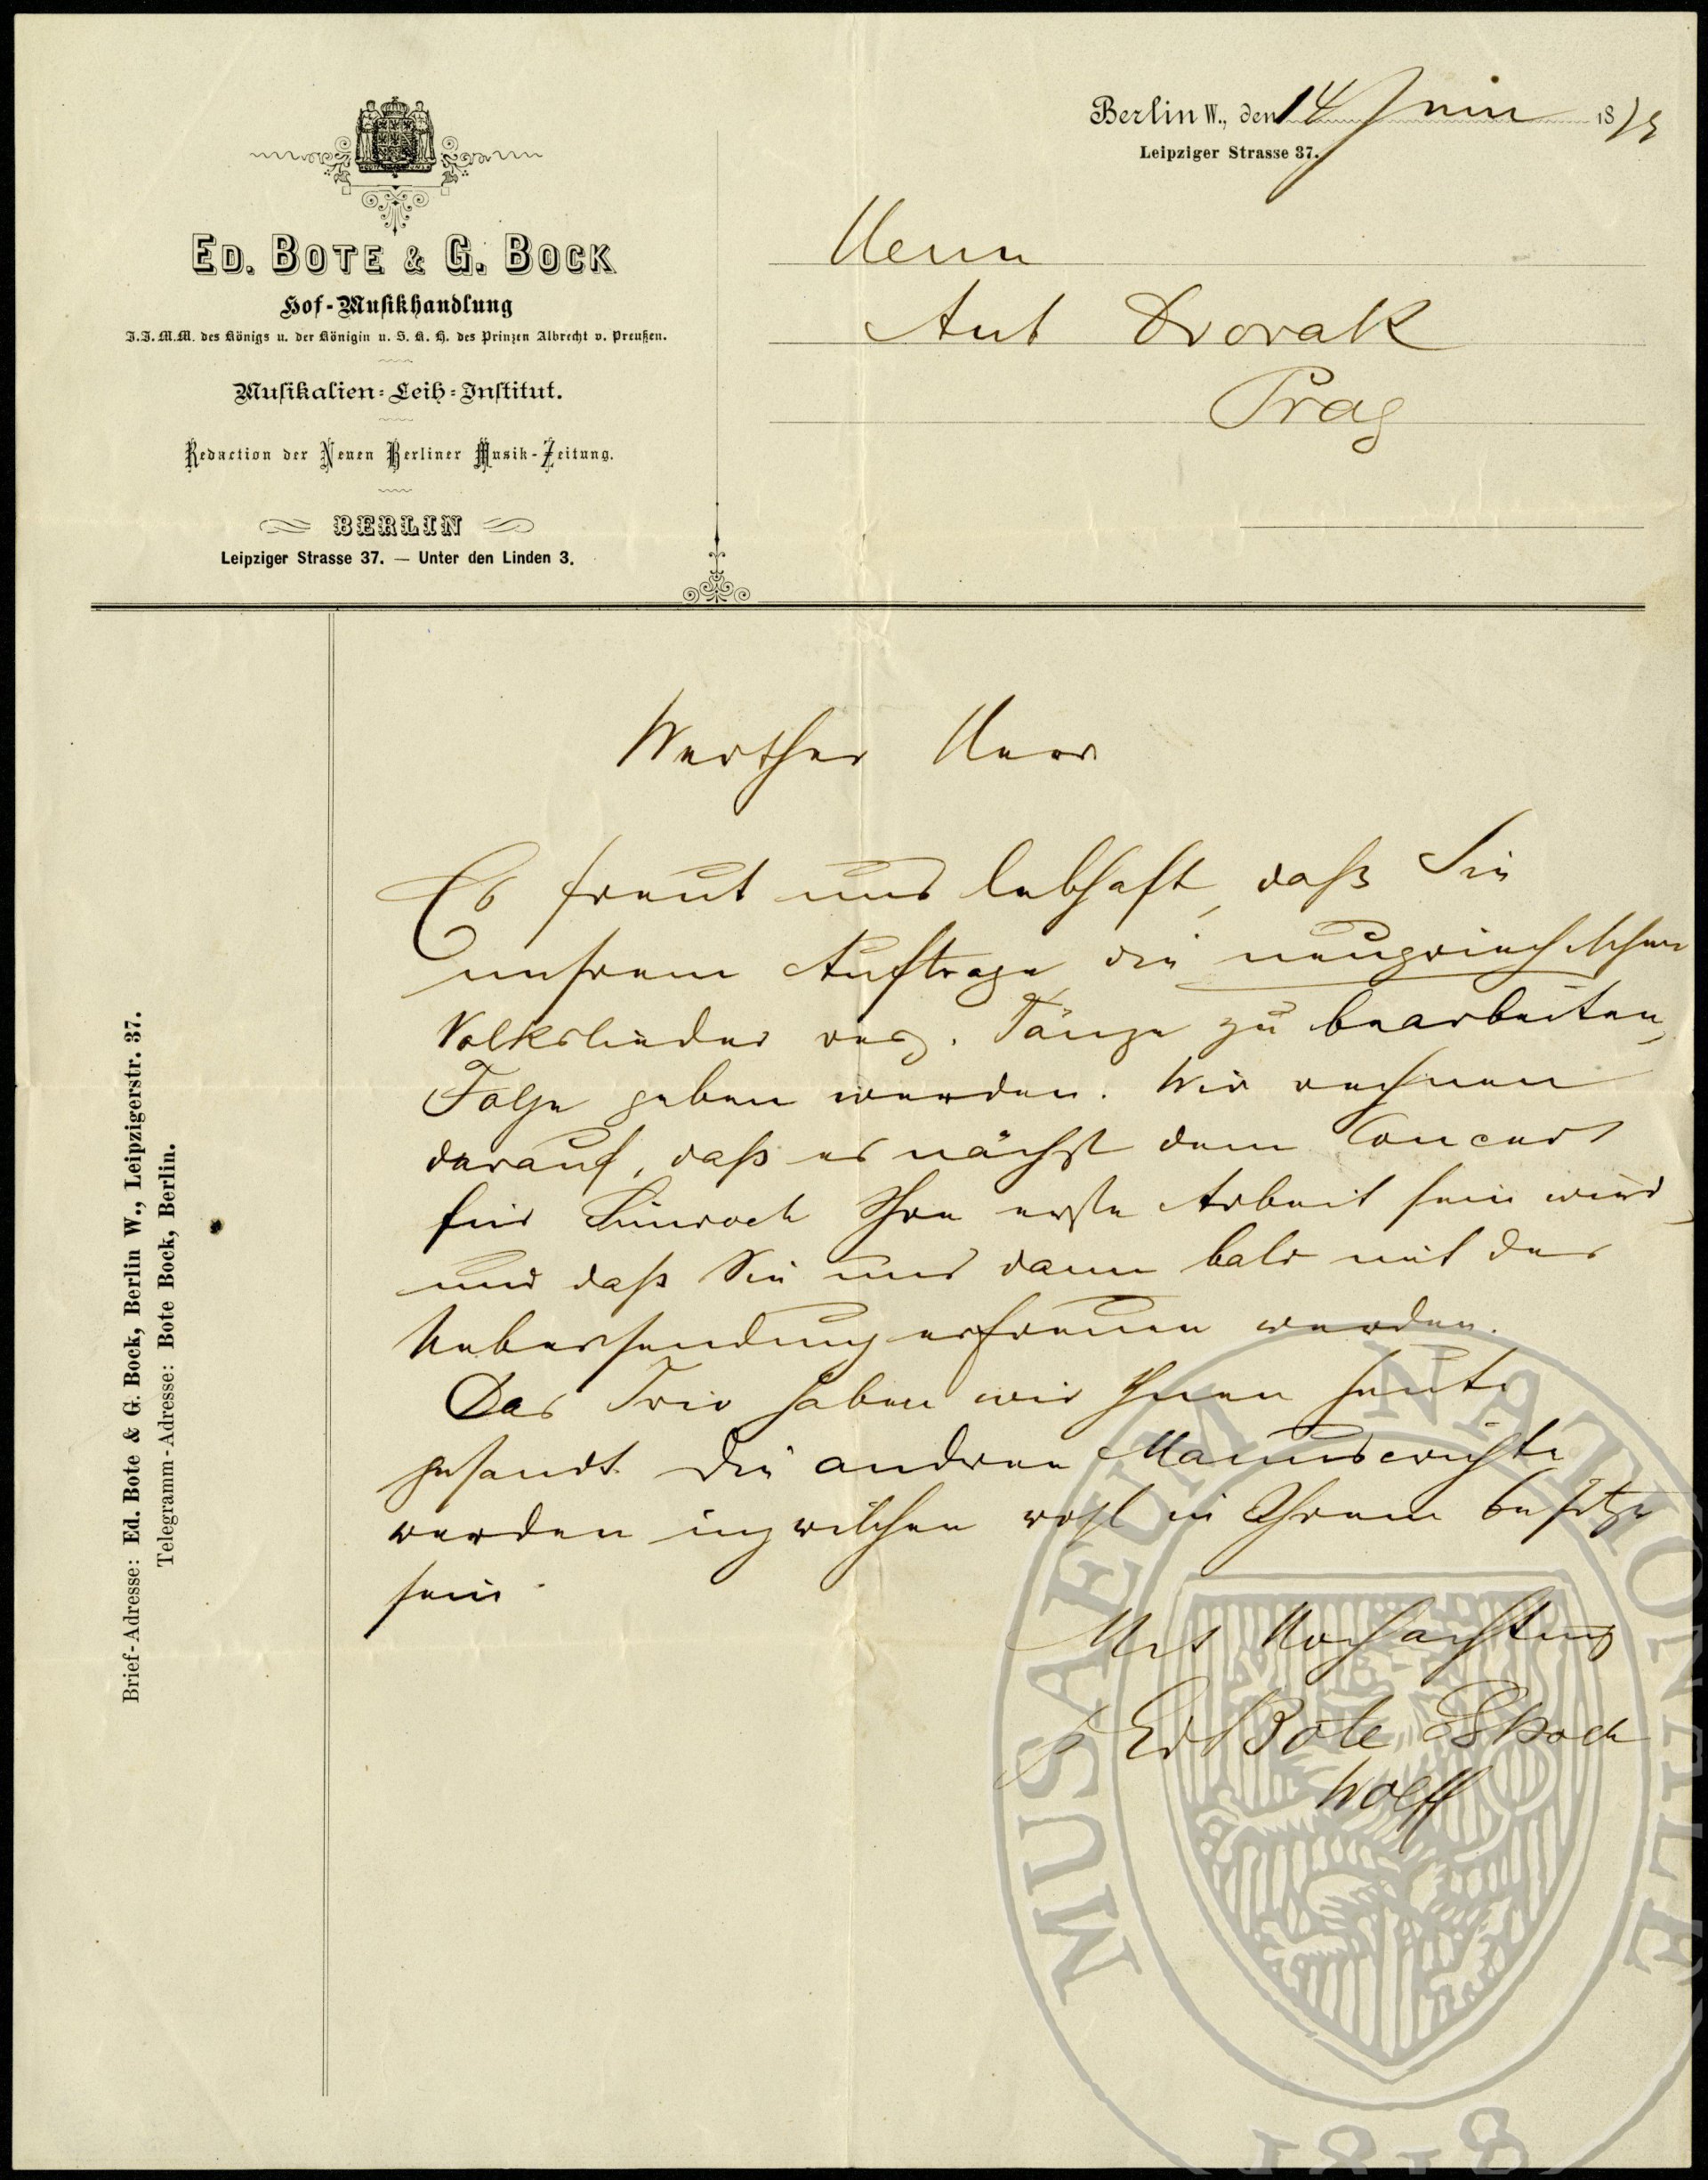 Berlin W., den 14 Juni 1879
Leipziger Strasse 37.
ED. BOTE & G. BOCK
Hof-Musikhandlung
I.I.M.M. des Königs u. der Königin u. S. K. H. des Prinzen Albrecht v. Preußen.
Musikalien-Leih-Institut.
Redaction der Neuen Berliner Musik-Zeitung.
BERLIN
Leipziger Strasse 37. — Unter den Linden 3.
Herrn
Ant Dvorak
Prag
Brief-Adresse: Ed. Bote & G. Bock, Berlin W., Leipzigerstr. 37.
Telegramm-Adresse: Bote Bock, Berlin.
Werther Herr
Es freut uns lebhaft, daß Sie
unsrem Auftrage die neugriechischen
Volkslieder resp. Tänze zu bearbeiten,
Folge geben werden. Wir rechnen
darauf, daß es nächst dem Concert
für Simrock Ihre erste Arbeit sein wird
und daß Sie uns dann bald mit der
Uebersendung erfreuen werden.
Das Trio haben wir Ihnen heute
gesandt. Die andren Manuscripte
werden inzwischen wohl in Ihrem Besitze
sein.
Mit Hochachtung
Ed Bote & G Bock
Wolff
MUSAEUM NATIONALE
1818